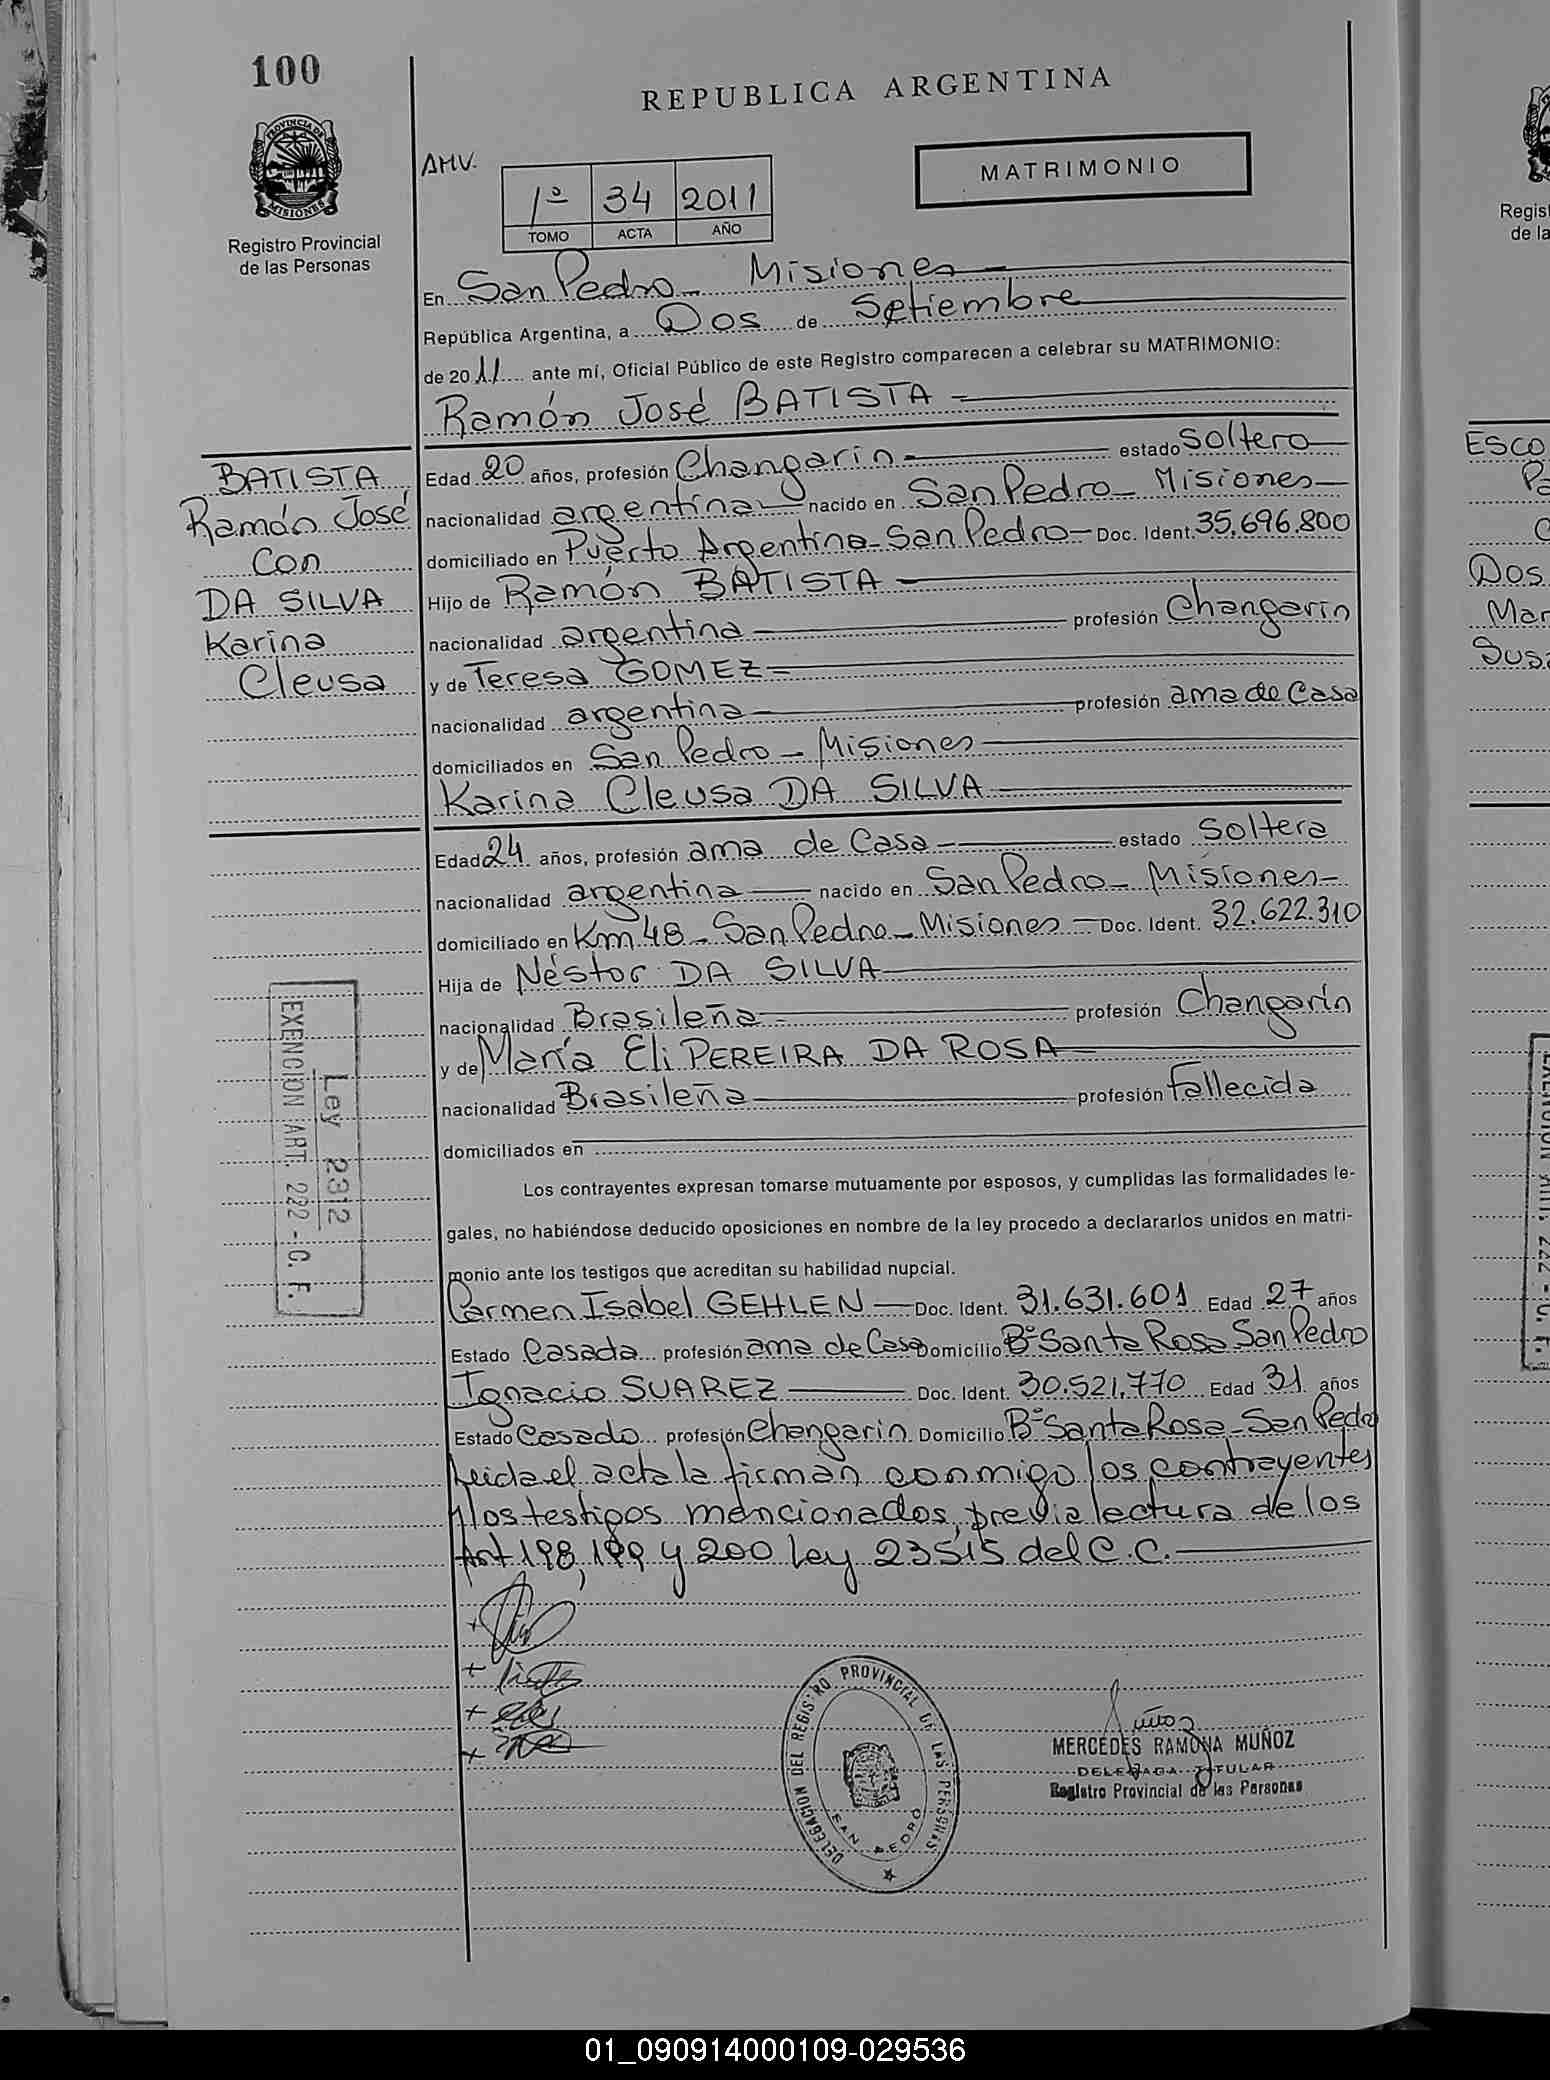 100
REPUBLICA ARGENTINA
PROVINCIA DE
MISIONES
Registro Provincial
de las Personas
AMV.
1º 34 2011
TOMO ACTA AÑO
MATRIMONIO
En San Pedro - Misiones
República Argentina, a Dos de Setiembre
de 2011 ante mí, Oficial Público de este Registro comparecen a celebrar su MATRIMONIO:
Ramón José BATISTA
BATISTA
Ramón José
Con
DA SILVA
Karina
Cleusa
Edad 20 años, profesión Changarin estado Soltero
nacionalidad argentina nacido en San Pedro - Misiones
domiciliado en Puerto Argentino - San Pedro - Doc. Ident. 35.696.800
Hijo de Ramón BATISTA
nacionalidad argentina profesión Changarin
y de Teresa GOMEZ
nacionalidad argentina profesión ama de Casa
domiciliados en San Pedro - Misiones
Karina Cleusa DA SILVA
Edad 24 años, profesión ama de Casa estado Soltera
nacionalidad argentina nacido en San Pedro - Misiones
domiciliado en Km 48 - San Pedro - Misiones - Doc. Ident. 32.622.310
Hija de Néstor DA SILVA
nacionalidad Brasileña profesión Changarín
y de María Eli PEREIRA DA ROSA
nacionalidad Brasileña profesión Fallecida
domiciliados en
Ley 2312
EXENCION ART. 222 - C. F.
Los contrayentes expresan tomarse mutuamente por esposos, y cumplidas las formalidades le-
gales, no habiéndose deducido oposiciones en nombre de la ley procedo a declararlos unidos en matri-
monio ante los testigos que acreditan su habilidad nupcial.
Carmen Isabel GEHLEN Doc. Ident. 31.631.601 Edad 27 años
Estado Casada profesión ama de Casa Domicilio Bº Santa Rosa San Pedro
Ignacio SUAREZ Doc. Ident. 30.521.770 Edad 31 años
Estado Casado profesión Changarin Domicilio Bº Santa Rosa - San Pedro
Leida el acta la firman conmigo los contrayentes
y los testigos mencionados, previa lectura de los
Art 198, 199 y 200 Ley 23515 del C.C.
DELEGACION DEL REGISTRO PROVINCIAL DE LAS PERSONAS
SAN PEDRO
MERCEDES RAMONA MUÑOZ
DELEGADA TITULAR
Registro Provincial de las Personas
Regist
de la
ESCO
Dos
Mar
Susa
01_090914000109-029536